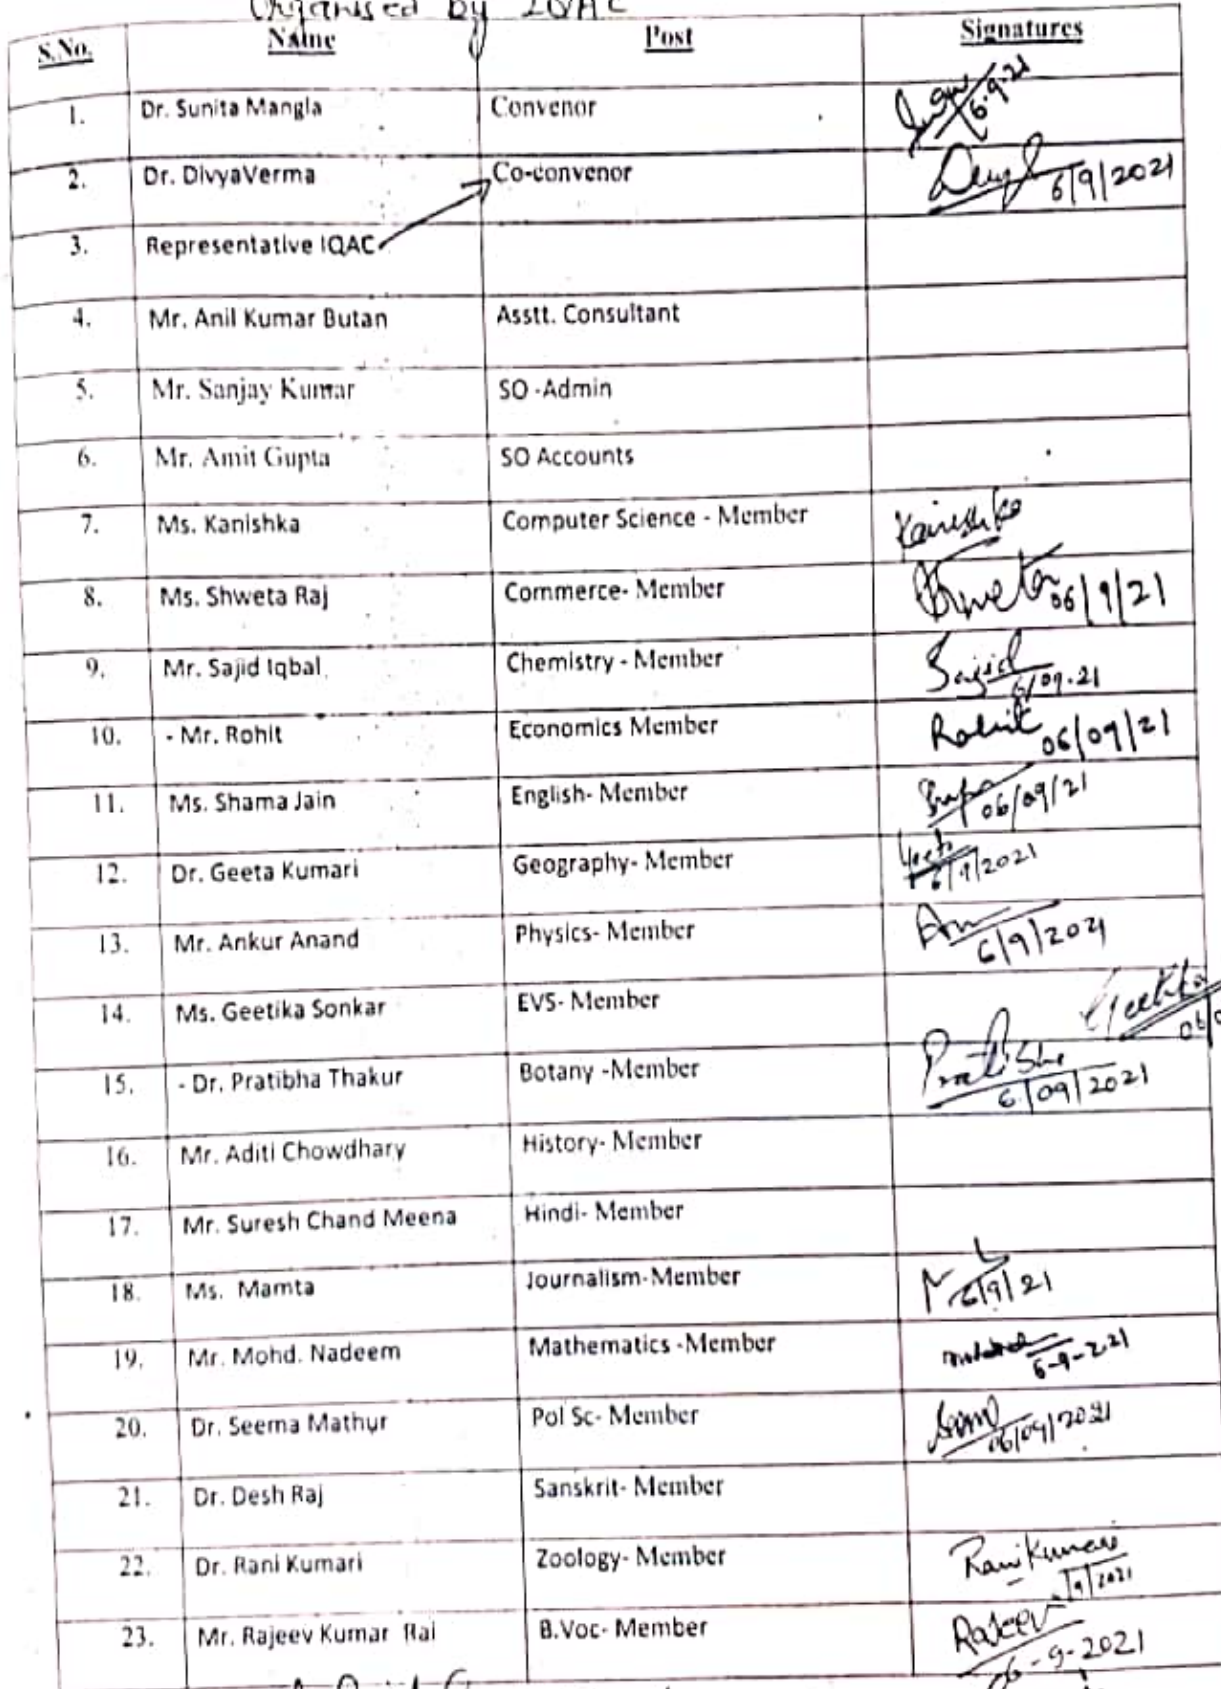 Organised by IQAC
S.No. Name Post Signatures
1. Dr. Sunita Mangla Convenor 6.9.21
2. Dr. DivyaVerma Co-convenor 6/9/2021
3. Representative IQAC
4. Mr. Anil Kumar Butan Asstt. Consultant
5. Mr. Sanjay Kumar SO -Admin
6. Mr. Amit Gupta SO Accounts
7. Ms. Kanishka Computer Science - Member Kanishka
8. Ms. Shweta Raj Commerce- Member Shweta 06/9/21
9. Mr. Sajid Iqbal Chemistry - Member Sajid 6/09.21
10. - Mr. Rohit Economics Member Rohit 06/09/21
11. Ms. Shama Jain English- Member 06/09/21
12. Dr. Geeta Kumari Geography- Member Geeta 6/9/2021
13. Mr. Ankur Anand Physics- Member 6/9/2021
14. Ms. Geetika Sonkar EVS- Member Geetika
15. - Dr. Pratibha Thakur Botany -Member Pratibha 6/09/2021
16. Mr. Aditi Chowdhary History- Member
17. Mr. Suresh Chand Meena Hindi- Member
18. Ms. Mamta Journalism-Member 6/9/21
19. Mr. Mohd. Nadeem Mathematics -Member 6-9-2021
20. Dr. Seema Mathur Pol Sc- Member 06/09/2021
21. Dr. Desh Raj Sanskrit- Member
22. Dr. Rani Kumari Zoology- Member Rani Kumari /9/2021
23. Mr. Rajeev Kumar Rai B.Voc- Member Rajeev 6-9-2021